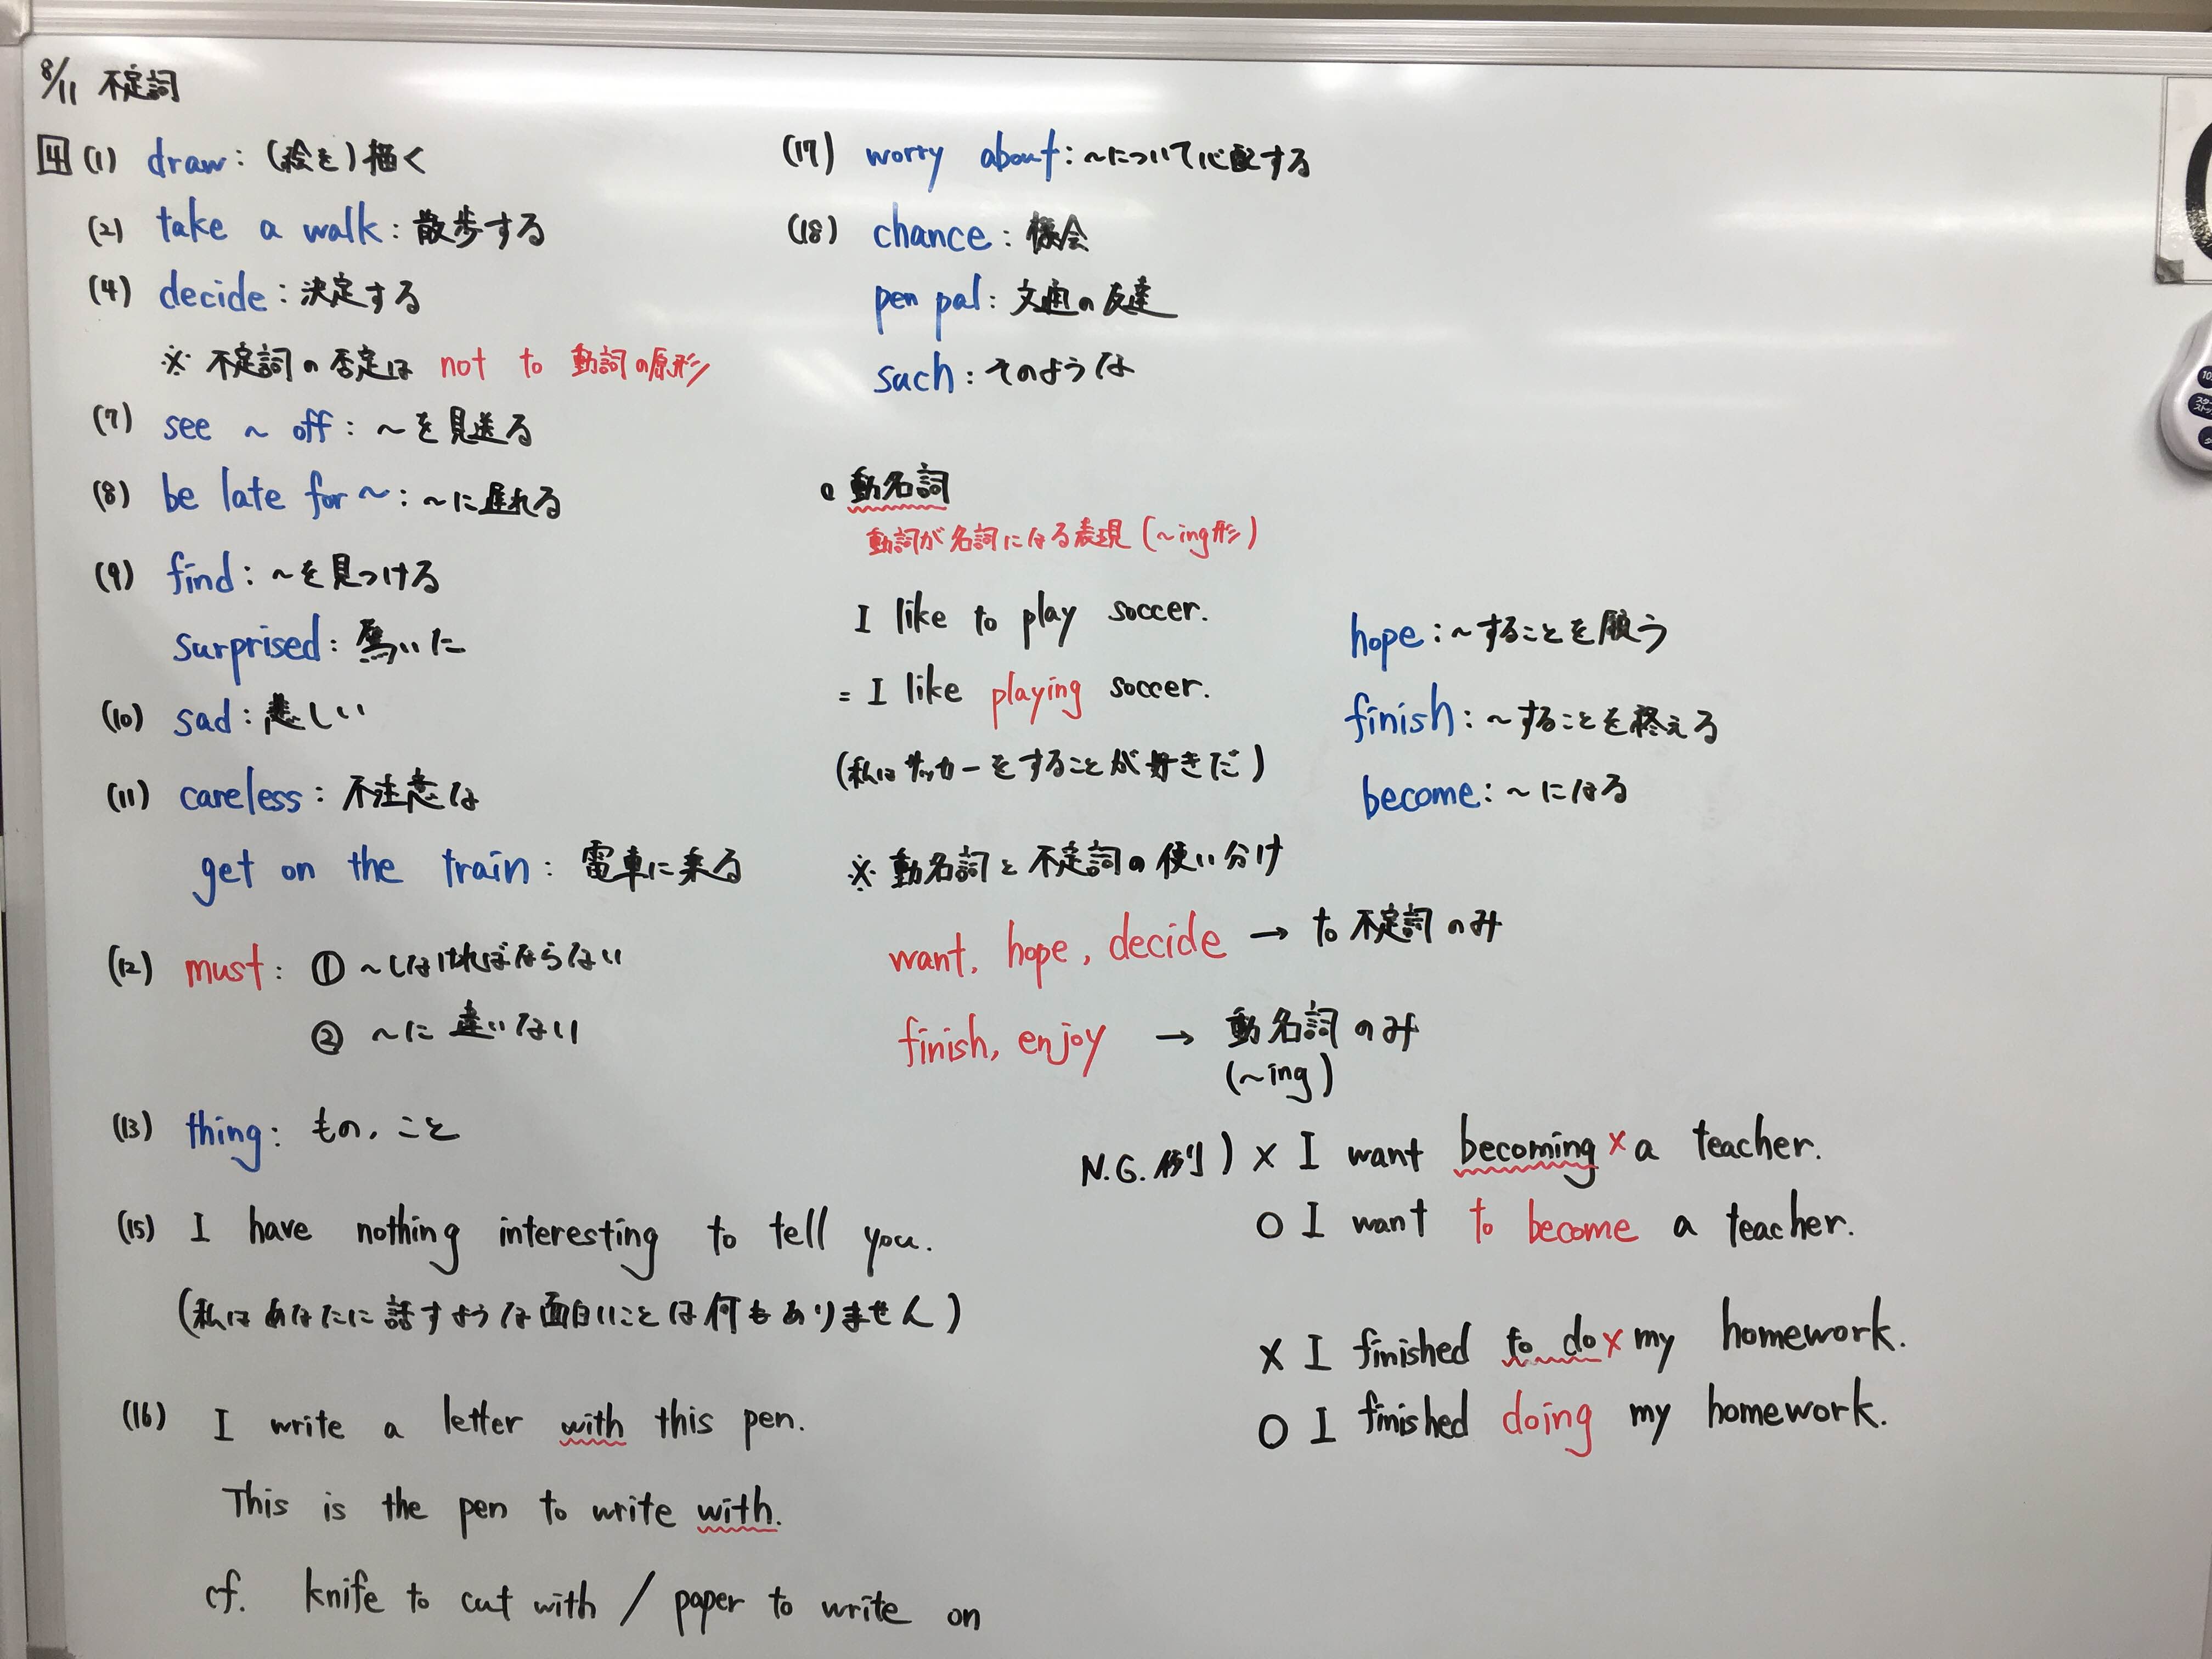 8/11 不定詞
4 (1) draw: (絵を)描く
(2) take a walk: 散歩する
(4) decide: 決定する
※ 不定詞の否定は not to 動詞の原形
(7) see ~ off: ~を見送る
(8) be late for ~: ~に遅れる
(9) find: ~を見つける
surprised: 驚いた
(10) sad: 悲しい
(11) careless: 不注意な
get on the train: 電車に乗る
(12) must: ① ~しなければならない
② ~に違いない
(13) thing: もの、こと
(15) I have nothing interesting to tell you.
(私はあなたに話すような面白いことは何もありません)
(16) I write a letter with this pen.
This is the pen to write with.
cf. knife to cut with / paper to write on
(17) worry about: ~について心配する
(18) chance: 機会
pen pal: 文通の友達
such: そのような
動名詞
動詞が名詞になる表現 (~ing形)
I like to play soccer.
= I like playing soccer.
(私はサッカーをすることが好きだ)
hope: ~することを願う
finish: ~することを終える
become: ~になる
※ 動名詞と不定詞の使い分け
want, hope, decide → to 不定詞のみ
finish, enjoy → 動名詞のみ
(~ing)
N.G. 例) × I want becoming × a teacher.
○ I want to become a teacher.
× I finished to do × my homework.
○ I finished doing my homework.